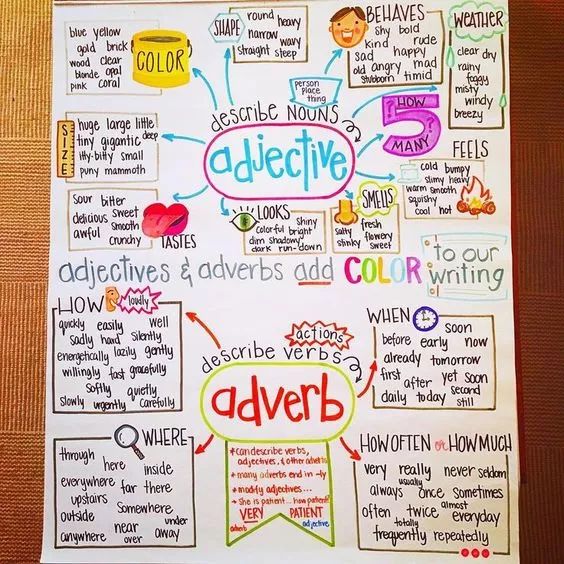 blue yellow
gold brick
wood clear
blonde opal
pink coral
COLOR
SHAPE
round heavy
narrow wavy
straight steep
BEHAVES
shy bold
kind rude
sad happy
old angry mad
stubborn timid
WEATHER
clear dry
rainy
foggy
misty
windy
breezy
person
place
thing
describe NOUNS
adjective
? HOW ?
5
MANY
SIZE
huge large little
tiny gigantic deep
itty-bitty small
puny mammoth
FEELS
cold bumpy
slimy heavy
warm smooth
squishy
cool hot
sour bitter
delicious sweet
awful smooth
crunchy
TASTES
LOOKS
shiny
colorful bright
dim shadowy
dark run-down
SMELLS
salty fresh
stinky flowery
sweet
adjectives & adverbs add COLOR to our writing
HOW
loudly
quickly easily well
sadly hard silently
energetically lazily gently
willingly fast gracefully
softly quietly
slowly urgently carefully
actions
describe verbs
adverb
WHEN
soon
before early now
already tomorrow
first after yet soon
daily today second
still
WHERE
through here inside
everywhere far there
upstairs
outside somewhere
near under
anywhere over away
• can describe verbs,
adjectives, & other adverbs
• many adverbs end in -ly
• modify adjectives...
• She is patient... how patient?
VERY PATIENT
adverb adjective
HOW OFTEN or HOW MUCH
very really never seldom
usually
always once sometimes
often twice almost everyday
totally
frequently repeatedly